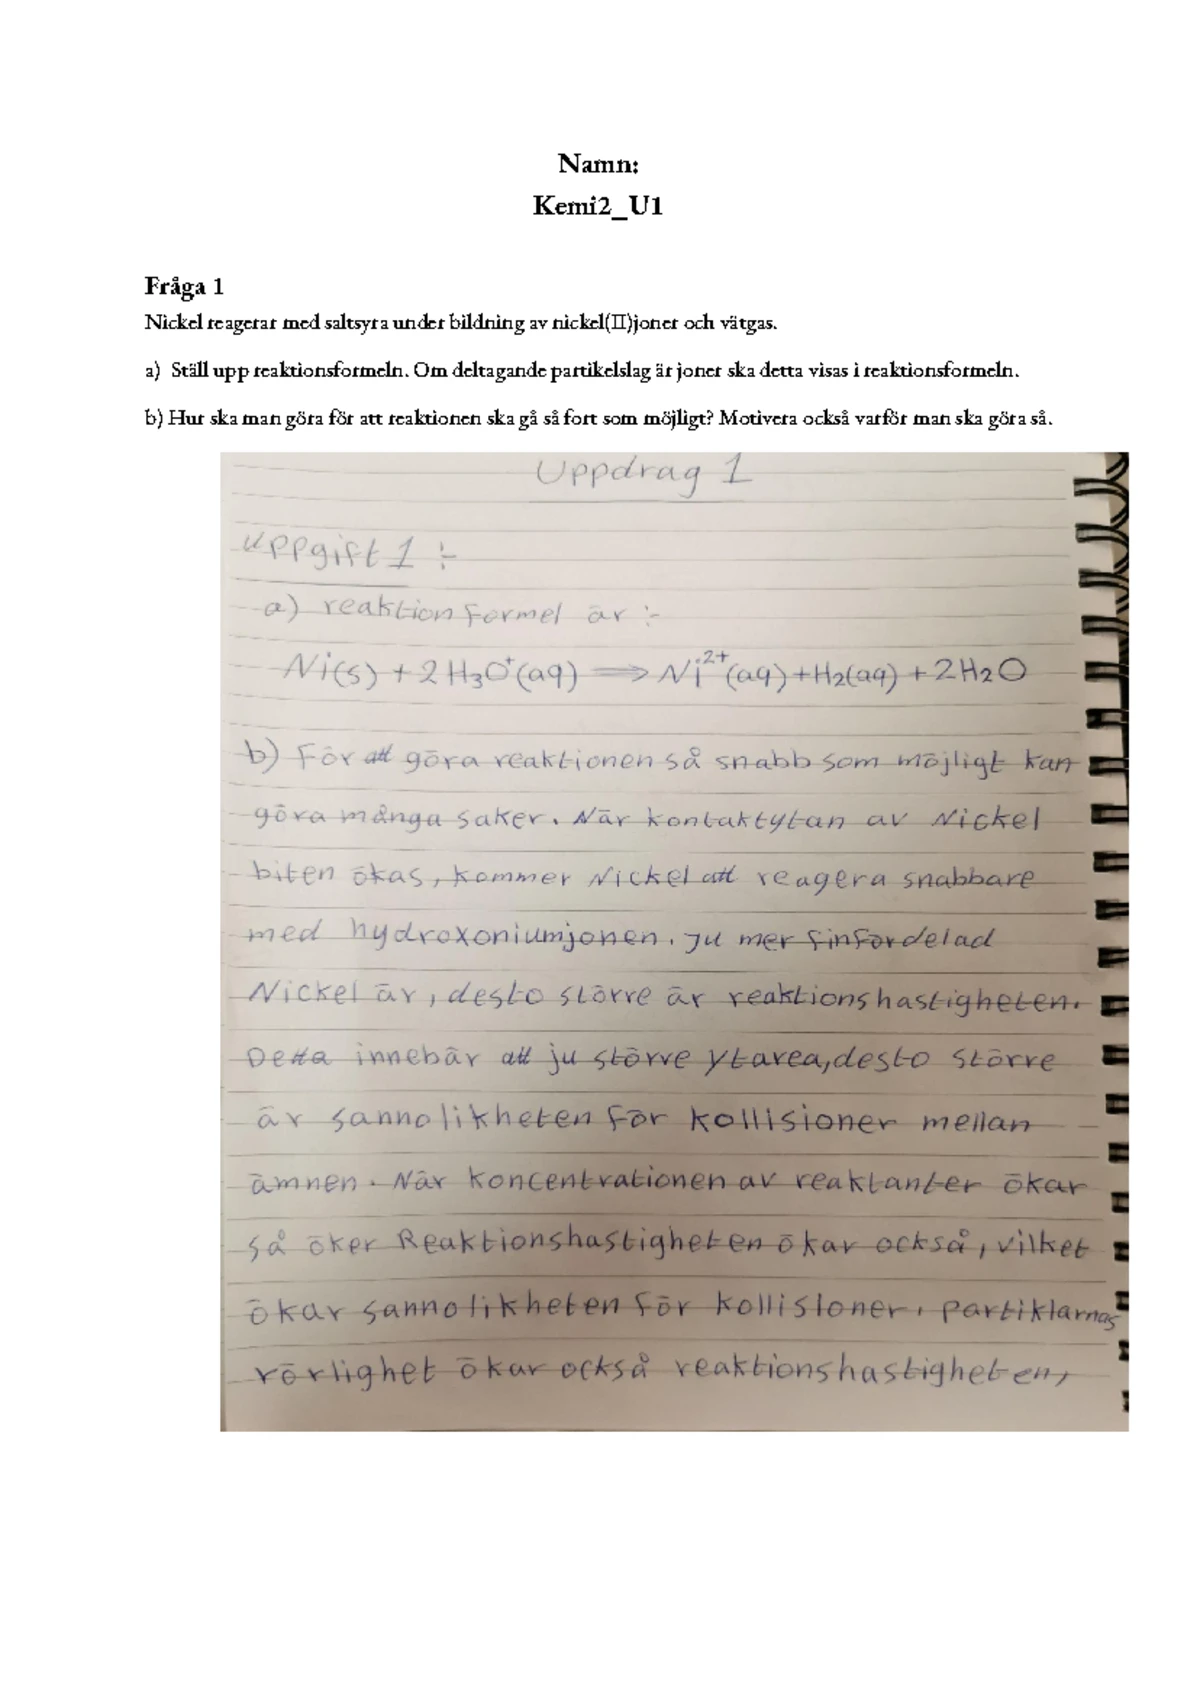 Namn:
Kemi2_U1
Fråga 1
Nickel reagerar med saltsyra under bildning av nickel(II)joner och vätgas.
a) Ställ upp reaktionsformeln. Om deltagande partikelslag är joner ska detta visas i reaktionsformeln.
b) Hur ska man göra för att reaktionen ska gå så fort som möjligt? Motivera också varför man ska göra så.
Uppdrag 1
uppgift 1 :-
a) reaktion formel är :-
Ni(s) + 2H₃O⁺(aq) ⟹ Ni²⁺(aq) + H₂(aq) + 2H₂O
b) För att göra reaktionen så snabb som möjligt kan
göra många saker. När kontaktytan av Nickel
biten ökas, kommer Nickel att reagera snabbare
med hydroxoniumjonen. Ju mer finfördelad
Nickel är, desto större är reaktionshastigheten.
Detta innebär att ju större ytarea, desto större
är sannolikheten för kollisioner mellan
ämnen. När koncentrationen av reaktanter ökar
så öker Reaktionshastigheten ökar också, vilket
ökar sannolikheten för kollisioner. partiklarnas
rörlighet ökar också reaktionshastigheten,